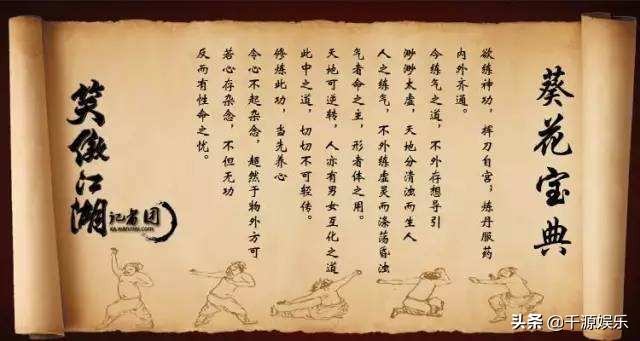 葵花宝典
欲练神功，挥刀自宫；炼丹服药
内外齐通。
今练气之道，不外存想导引
渺渺太虚，天地分清浊而生人
人之练气，不外练虚灵而涤荡昏浊
气者命之主，形者体之用。
天地可逆转，人亦有男女互化之道
此中之道，切切不可轻传。
修炼此功，当先养心
令心不起杂念，超然于物外方可
若心存杂念，不但无功
反而有性命之忧。
笑傲江湖
记者团
头条 @千源娱乐